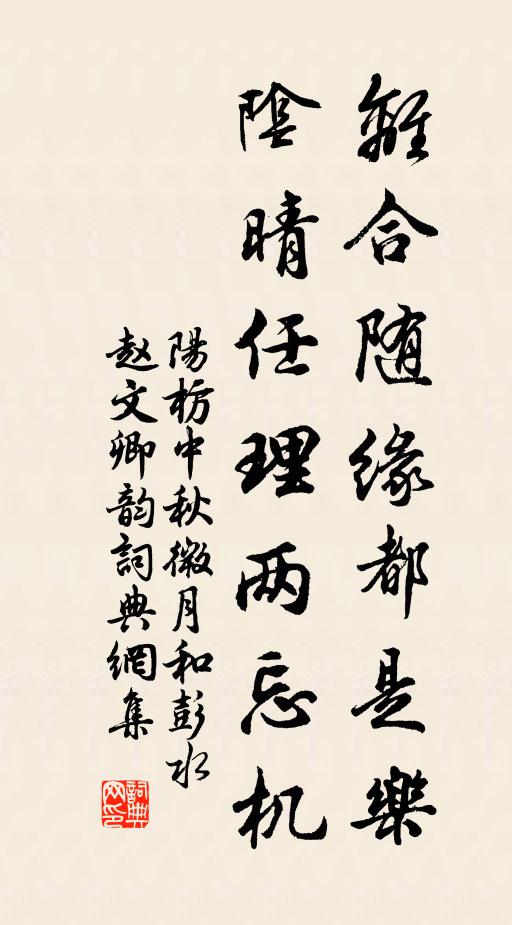 離合随缘都是樂
陰晴任理两忘机
陽枋中秋微月和彭水
赵文卿韵詞典網集
詞典网印